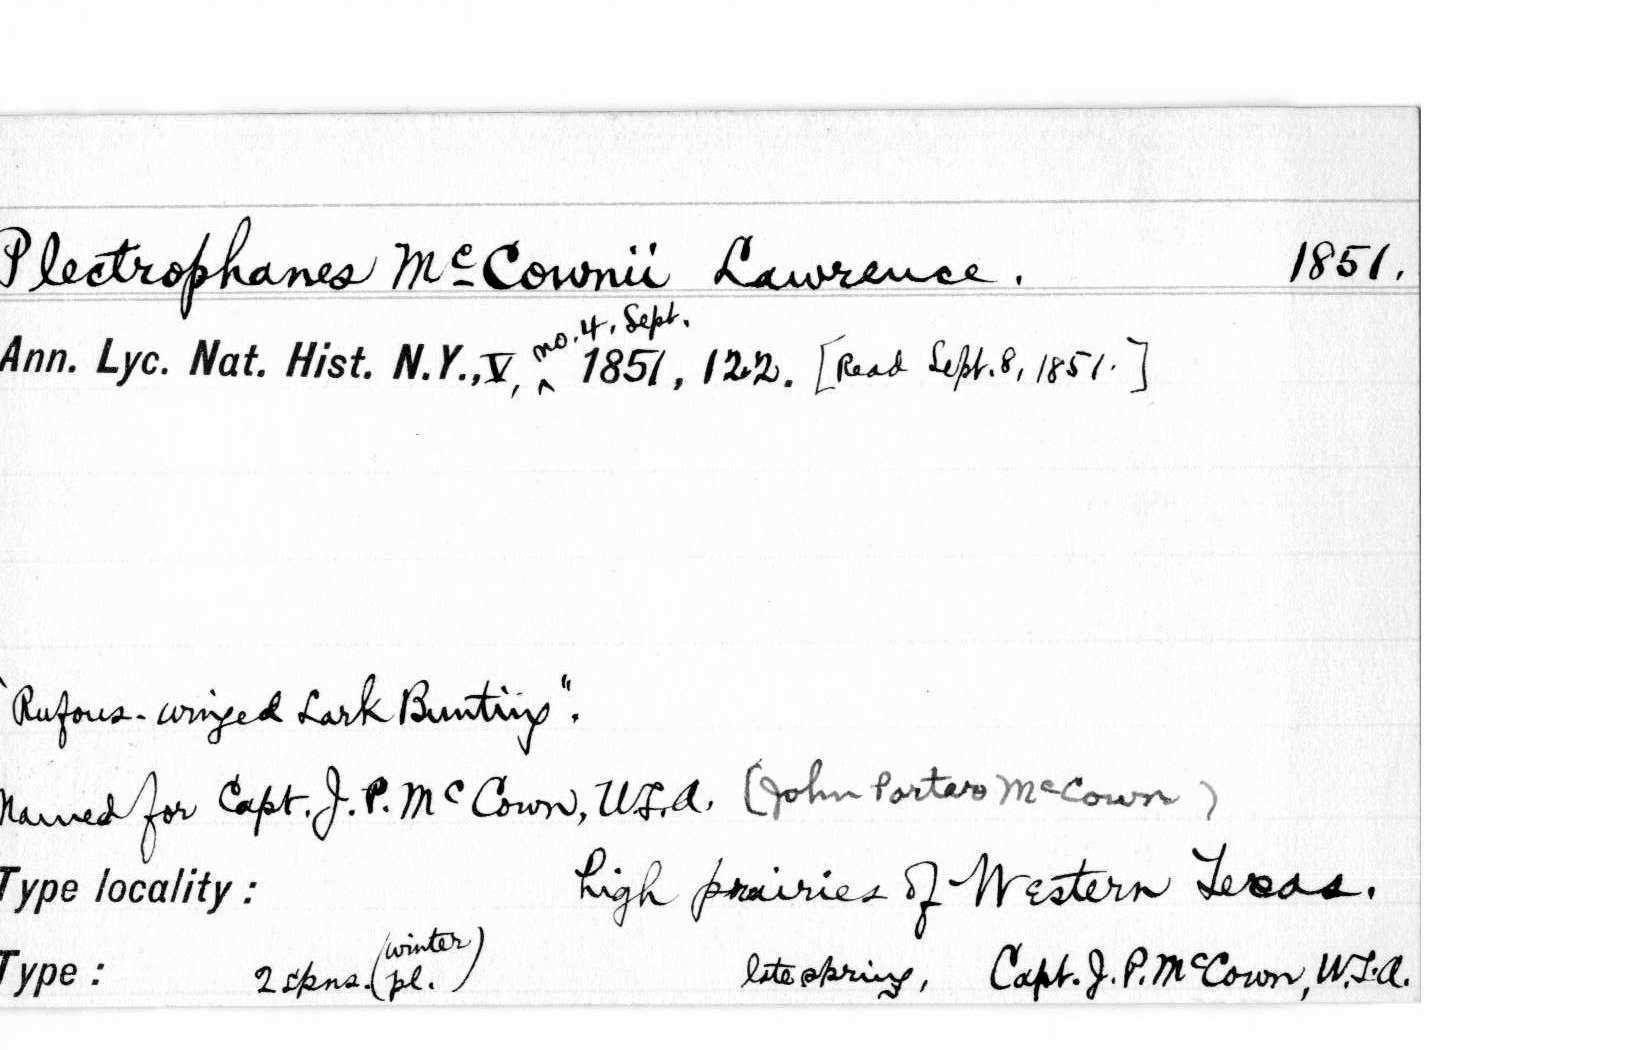 Plectrophanes McCownii Lawrence. 1851.
Ann. Lyc. Nat. Hist. N.Y., V, no. 4, Sept. 1851, 122. [Read Sept. 8, 1851.]
"Rufous-winged Lark Bunting".
Named for Capt. J. P. McCown, U.S.A. (John Porter McCown)
Type locality: high prairies of Western Texas.
Type: 2 spns. (winter pl.) late spring, Capt. J. P. McCown, U.S.A.